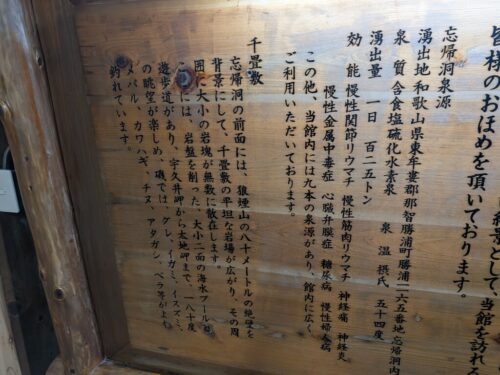 景として、当館を訪れる
皆様のおほめを頂いております。
忘帰洞泉源
湧出地 和歌山県東牟婁郡那智勝浦町勝浦一一六五番地忘帰洞内
泉質 含食塩硫化水素泉 泉温 摂氏 五十四度
湧出量 一日 百二五トン
効能 慢性関節リウマチ 慢性筋肉リウマチ 神経痛 神経炎
慢性金属中毒症 心臓弁膜症 糖尿病 慢性婦人病
この他、当館内には九本の泉源があり、館内に広く
ご利用いただいております。
千畳敷
忘帰洞の前面には、狼煙山の八十メートルの絶壁を
背景にして、千畳敷の平坦な岩場が広がり、その周
囲に大小の岩塊が無数に散在します。
には、岩盤を削った、大小二面の海水プールと
遊歩道があり、宇久井岬から太地岬まで、一八十度
の眺望が楽しめ、磯では、グレ、イガミ、イスズミ、
メバル、カワハギ、チヌ、アタガシ、ベラ等がよく
釣れています。